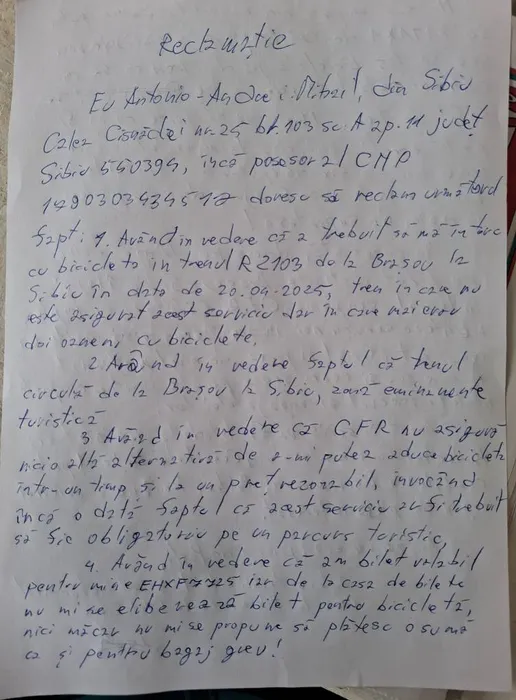 Reclamație
Eu Antonio-Andrei Mihail, din Sibiu
Calea Cisnădiei nr. 25 bl. 103 sc. A ap. 11 județ
Sibiu 550394, încă posesor al CNP
doresc să reclam următorul
fapt: 1. Având în vedere că a trebuit să mă întorc
cu bicicleta în trenul R2103 de la Brașov la
Sibiu în data de 20.04.2025, tren în care nu
este asigurat acest serviciu dar în care mai erau
doi oameni cu biciclete.
2. Având în vedere faptul că trenul
circulă de la Brașov la Sibiu, zonă eminamente
turistică
3. Având în vedere că CFR nu asigură
nicio altă alternativă de a-mi putea aduce bicicleta
într-un timp și la un preț rezonabil, invocând
încă o dată faptul că acest serviciu ar fi trebuit
să fie obligatoriu pe un parcurs turistic,
4. Având în vedere că am bilet valabil
pentru mine EHXF7725 iar de la casa de bilete
nu mi se eliberează bilet pentru bicicletă,
nici măcar nu mi se propune să plătesc o sumă
ca și pentru bagaj greu!